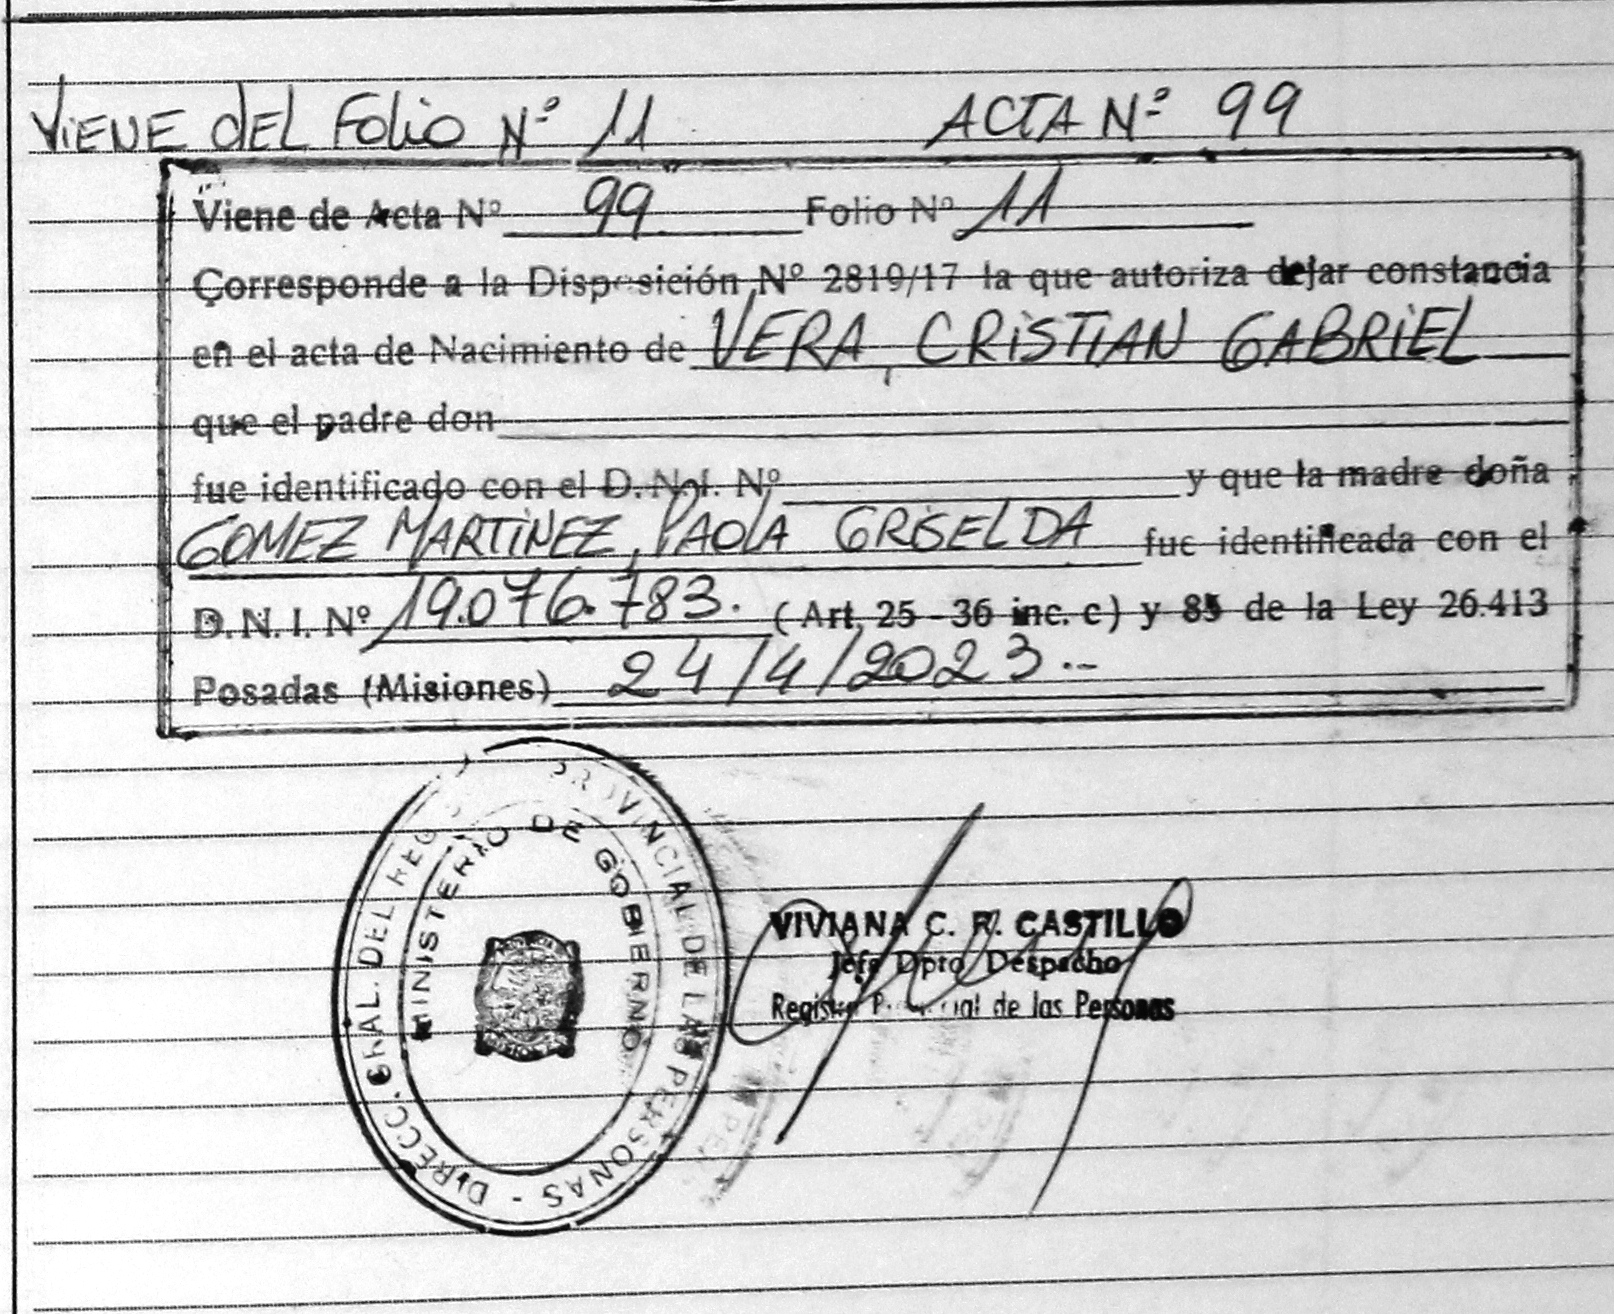 VIENE DEL FOLIO Nº 11 ACTA Nº 99
Viene de Acta Nº 99 Folio Nº 11
Corresponde a la Disposición Nº 2819/17 la que autoriza dejar constancia
en el acta de Nacimiento de VERA, CRISTIAN GABRIEL
que el padre don
fue identificado con el D.N.I. Nº y que la madre doña
GOMEZ MARTINEZ, PAOLA GRISELDA fue identificada con el
D.N.I. Nº 19.076.783. (Art. 25 - 36 inc. c) y 85 de la Ley 26.413
Posadas (Misiones) 24/4/2023.--
DIRECC. GRAL. DEL REG PROVINCIAL DE LAS PERSONAS -
MINISTERIO DE GOBIERNO
VIVIANA C. R. CASTILLO
Jefe Dpto. Despacho
Registro Provincial de las Personas